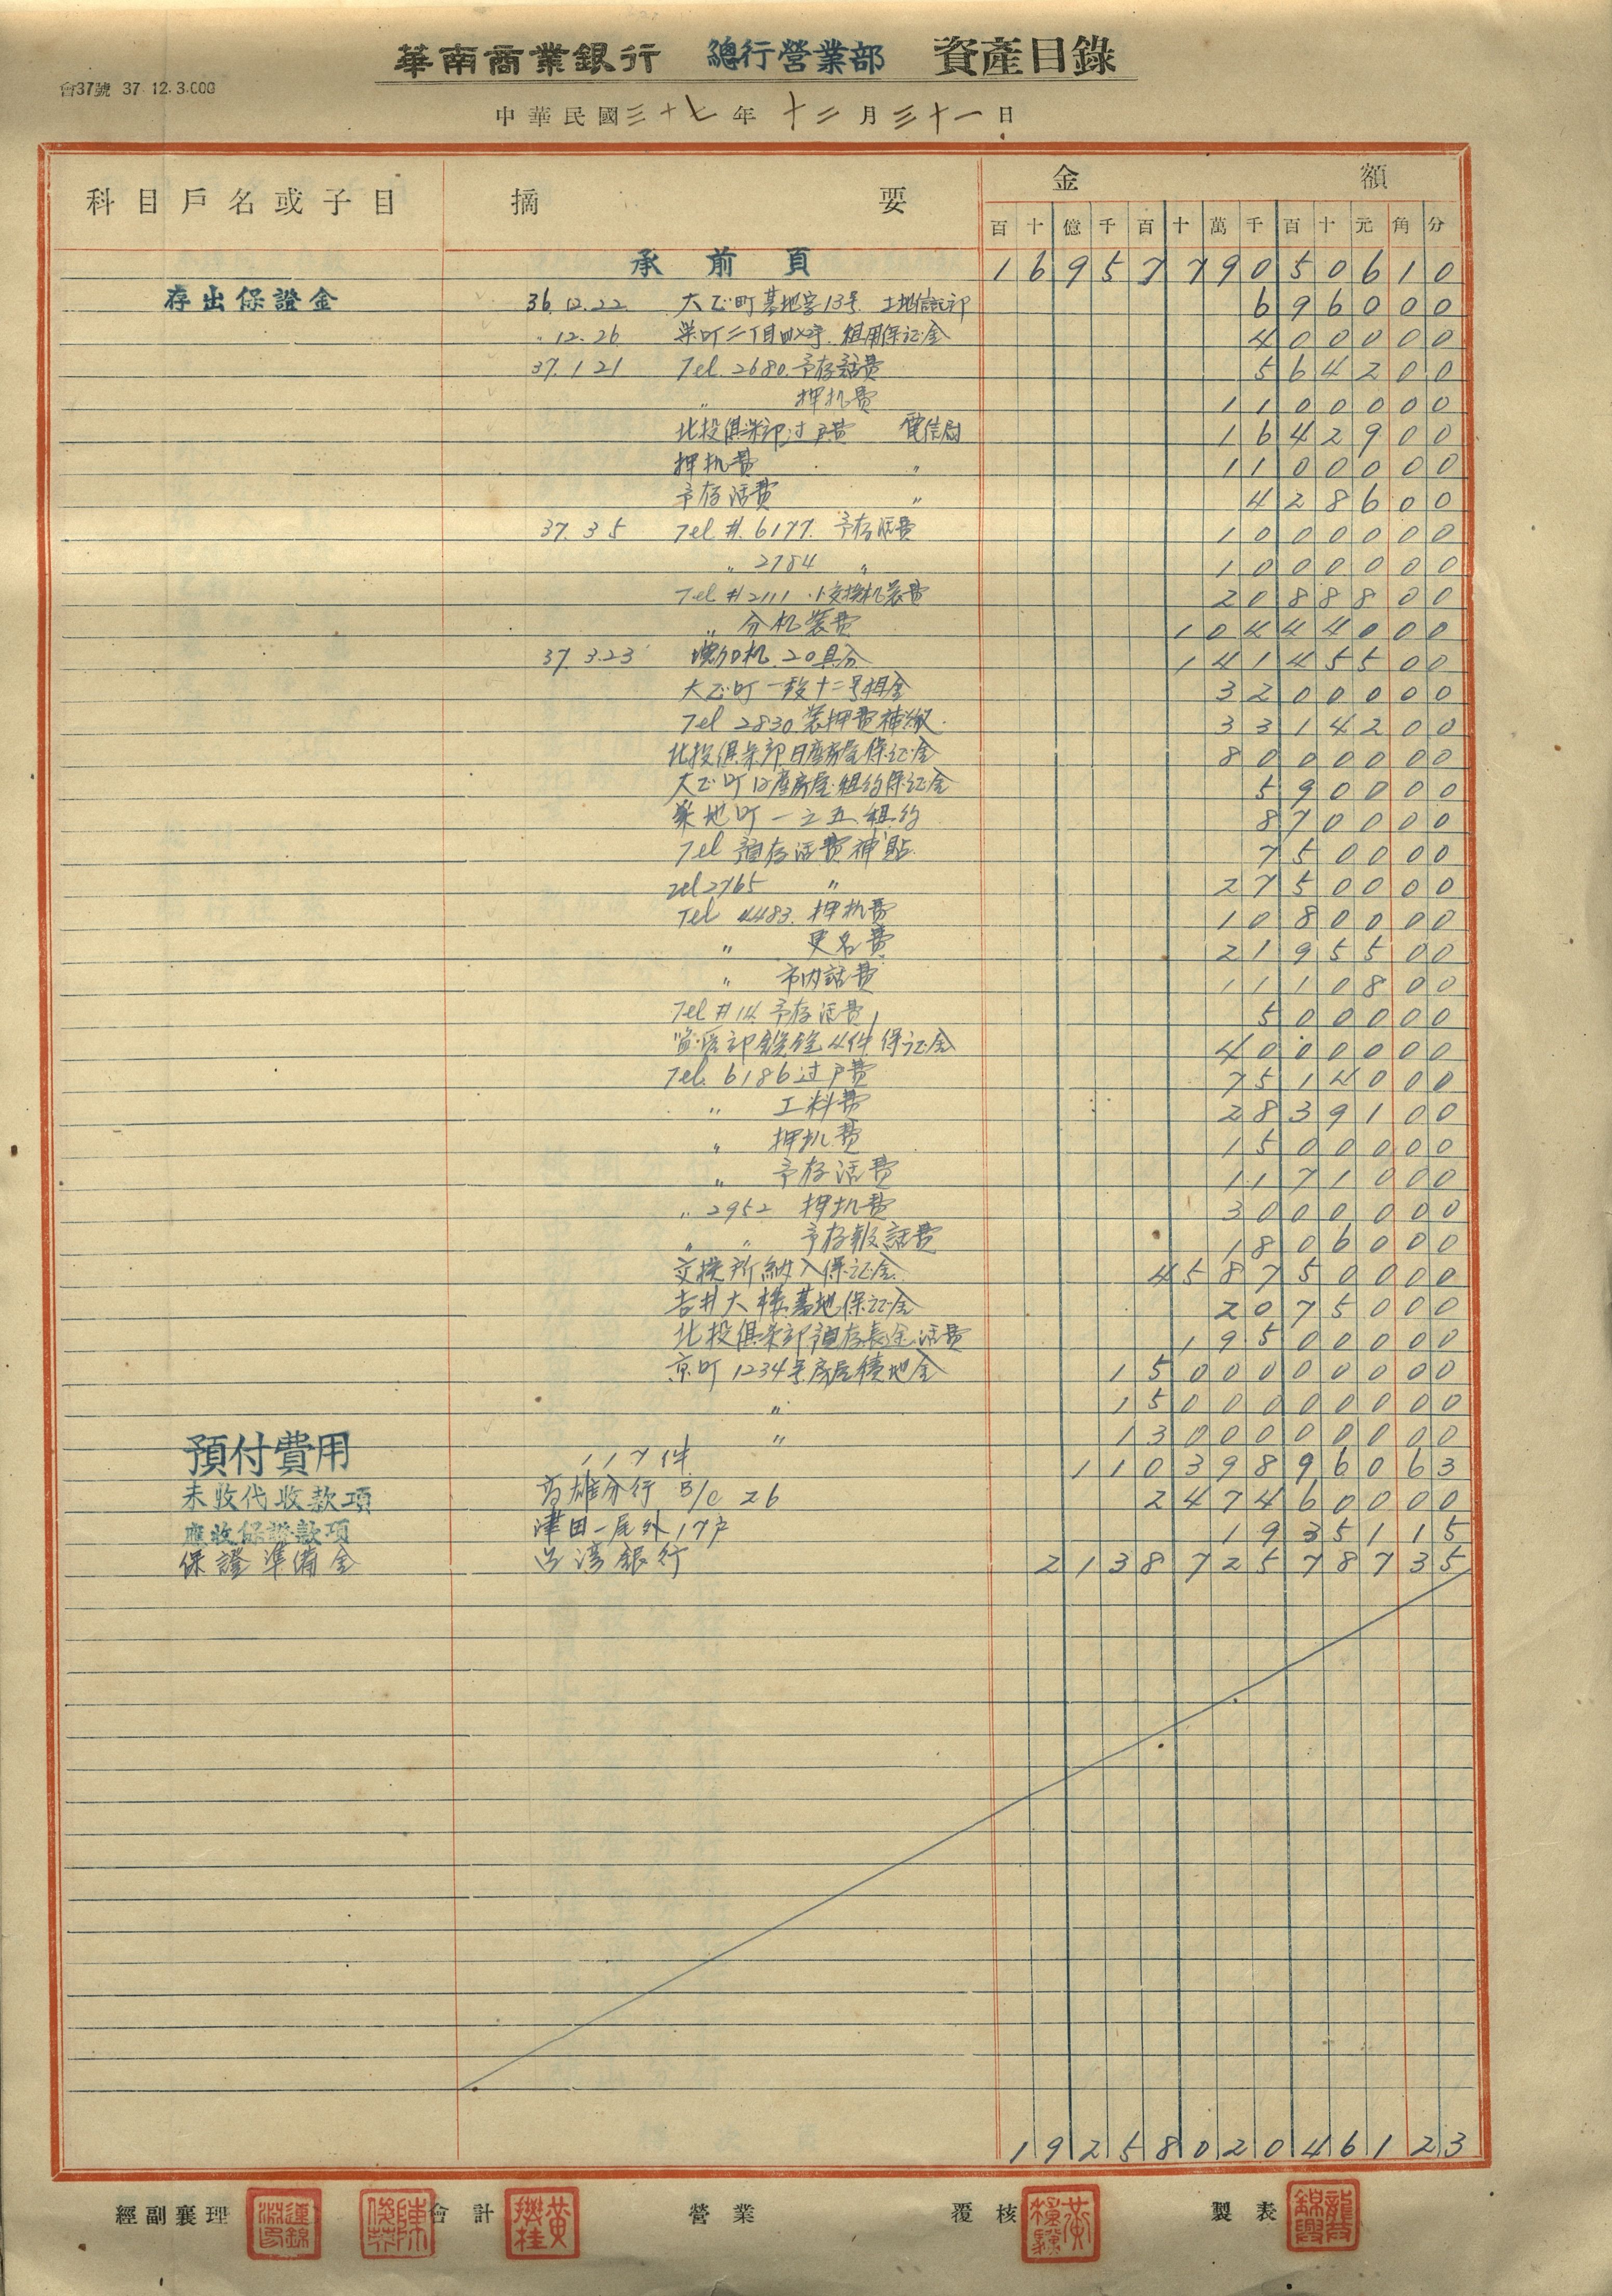 華南商業銀行 總行營業部 資產目錄
會37號 37.12.3.000
中華民國三十七年 十二月三十一日
科目戶名或子目 摘要 金額
百十億千百十萬千百十元角分
承前頁 1695779050610
存出保證金 36.12.22 大正町基地字13号 土地信託部 696000
〃 12.26 栄町二丁目 租用保证金 400000
37.1.21 Tel. 2680. 予存話費 564200
〃 押机費 1100000
北投俱楽部过户費 電信局 1642900
押机費 〃 1100000
予存话費 〃 428600
37.3.5 Tel #. 6177. 予存话費 1000000
〃 2784 〃 1000000
Tel #2111 小交換机装費 2088800
〃 分机装費 10444000
37.3.23 机 20具分 14145500
大正町一段十二号租金 3200000
Tel 2830 装押費補繳 3314200
北投俱楽部日産房屋保证金 8000000
大正町日産房屋租約保证金 590000
築地町一之五租约 870000
Tel 預存话費補貼 750000
Tel 2765 〃 2750000
Tel 4483. 押机費 1080000
〃 更名費 2195500
〃 市内話費 1110800
Tel #14 予存话費 500000
4件 保证金 4000000
Tel. 6186 过户費 7514000
〃 工料費 2839100
〃 押机費 1500000
〃 予存话費 1171000
〃 2952 押机費 3000000
〃 〃 予存報話費 1806000
交換所納入保证金 458750000
吉井大楼基地保证金 2075000
北投俱楽部預存長途话費 19500000
京町1234号房屋積地金 1500000000
〃 1500000000
〃 1300000000
預付費用 117件 11039896063
未收代收款項 高雄分行 B/C 26 247460000
應收保證款項 津田一尾外17户 1935115
保證準備金 台湾銀行 213872578735
1925802046123
經副襄理 會計 營業 覆核 製表